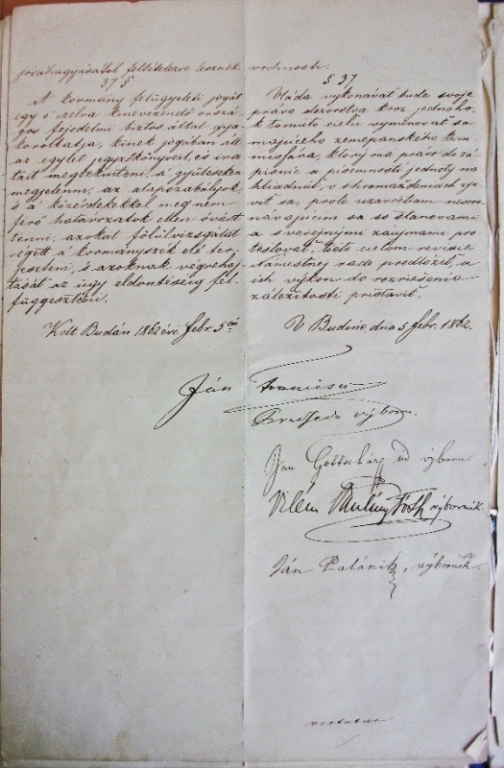 jóváhagyásától feltételezve lesznek.
37 §
A kormány felügyeleti jogát
egy e czélra kinevezendő orszá-
gos fejedelmi biztos által gya-
koroltatja, kinek jogában áll
az egylet jegyzőkönyveit, és ira-
tait megtekinteni, a gyűléseken
megjelenni, az alapszabályok,
s a közérdekekkel meg nem
férő határozatok ellen óvást
tenni, azokat fölülvizsgálat
végett a kormányszék elé ter-
jeszteni, s azoknak végrehaj-
tását az ügy eldöntéseig fel-
függeszteni.
Kelt Budán 1862 évi febr. 5én
vrchnosti.
§ 37
Vláda vykonávať bude svoje
právo dozorstva kroz jednoho,
k tomuto cielu vymenovať sa
majúceho zemepanského kom-
missára, ktorý má právo do zá-
písnic a písemností jednoty na-
hliadnúť, v shromaždeniach zja-
viť sa, proti uzavretiam nesrov-
návajúcim sa so stanovami
a s verejnými záujmami pro-
testovať, tieto cielom revisie
Námestnej rade predložiť, a
ich výkon do rozriešenia
záležitosti pristaviť.
V Budíne dňa 5 febr. 1862.
Ján Francisci
Predseda výboru.
Ján výboru
Vilém Paulíny Tóth, výborník
Ján Palárik, výborník